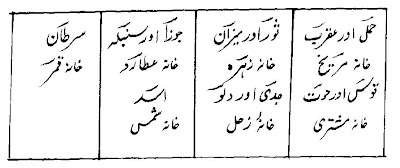 حمل اور عقرب
خانہ مریخ
قوس اور حوت
خانہ مشتری
ثور اور میزان
خانہ زہرہ
جدی اور دلو
خانۂ زحل
جوزا اور سنبلہ
خانہ عطارد
اسد
خانہ شمس
سرطان
خانہ قمر